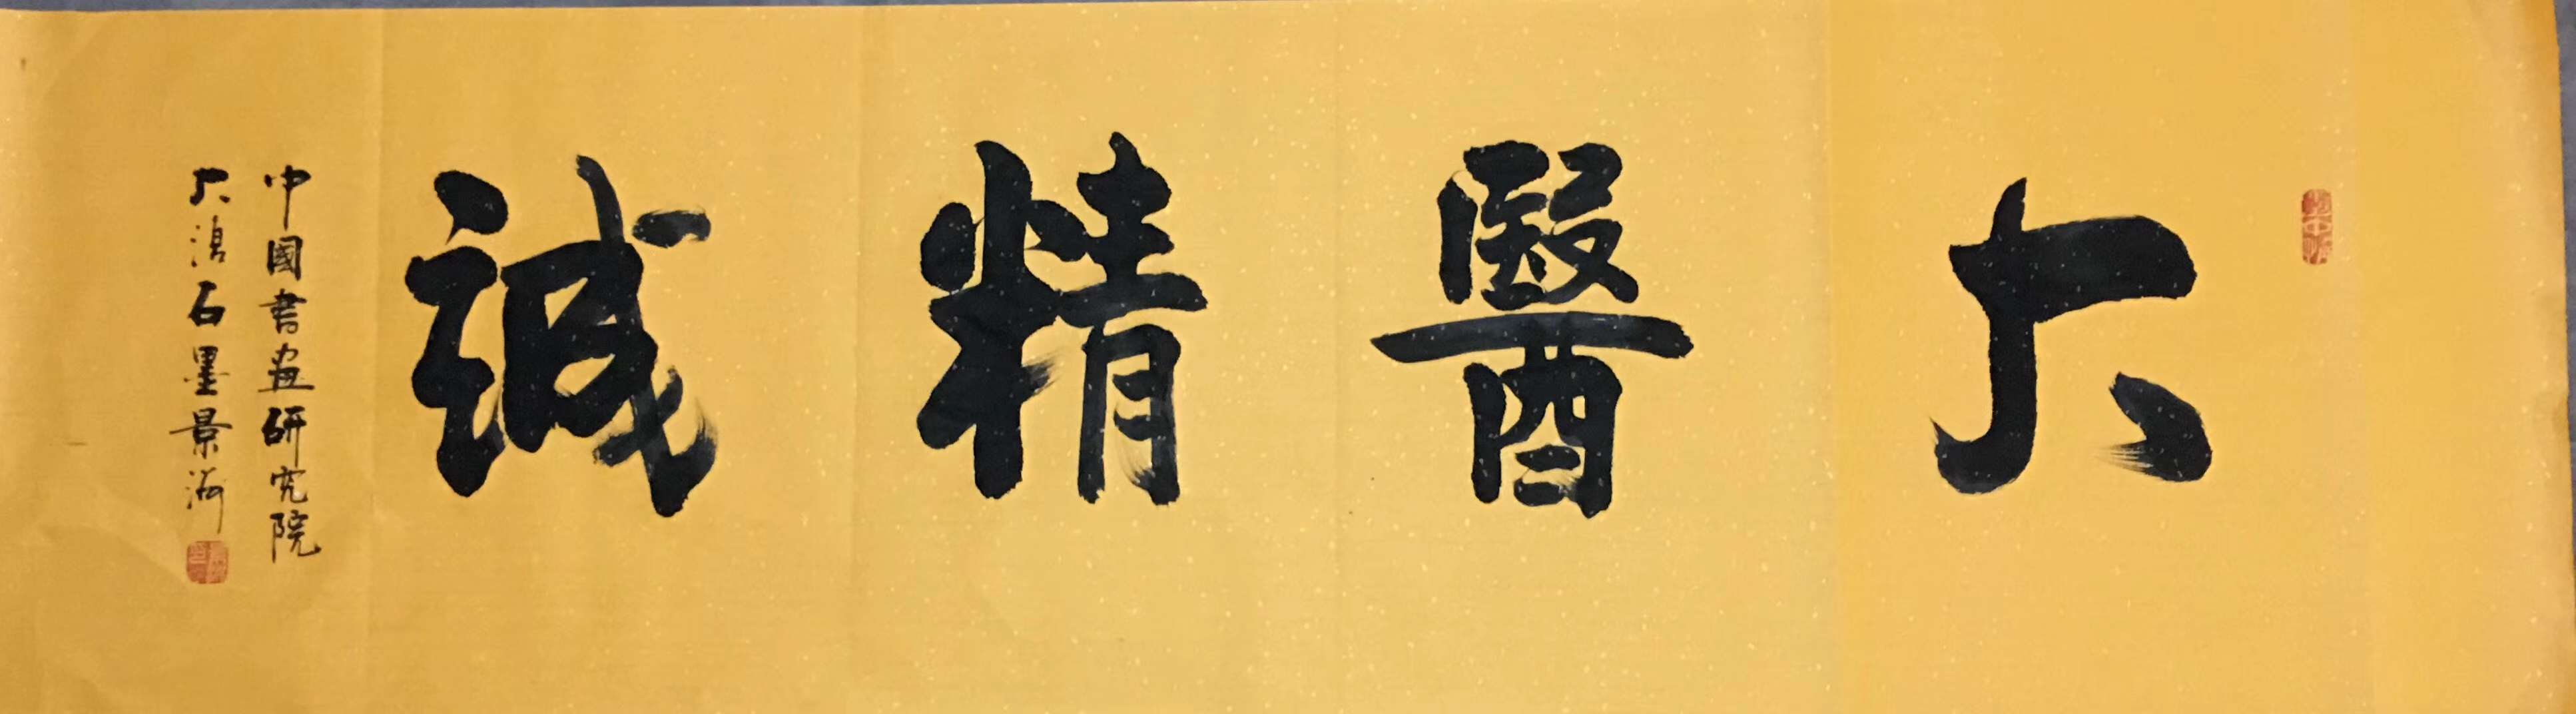 大醫精誠
中國書畫研究院
大滄石墨景海